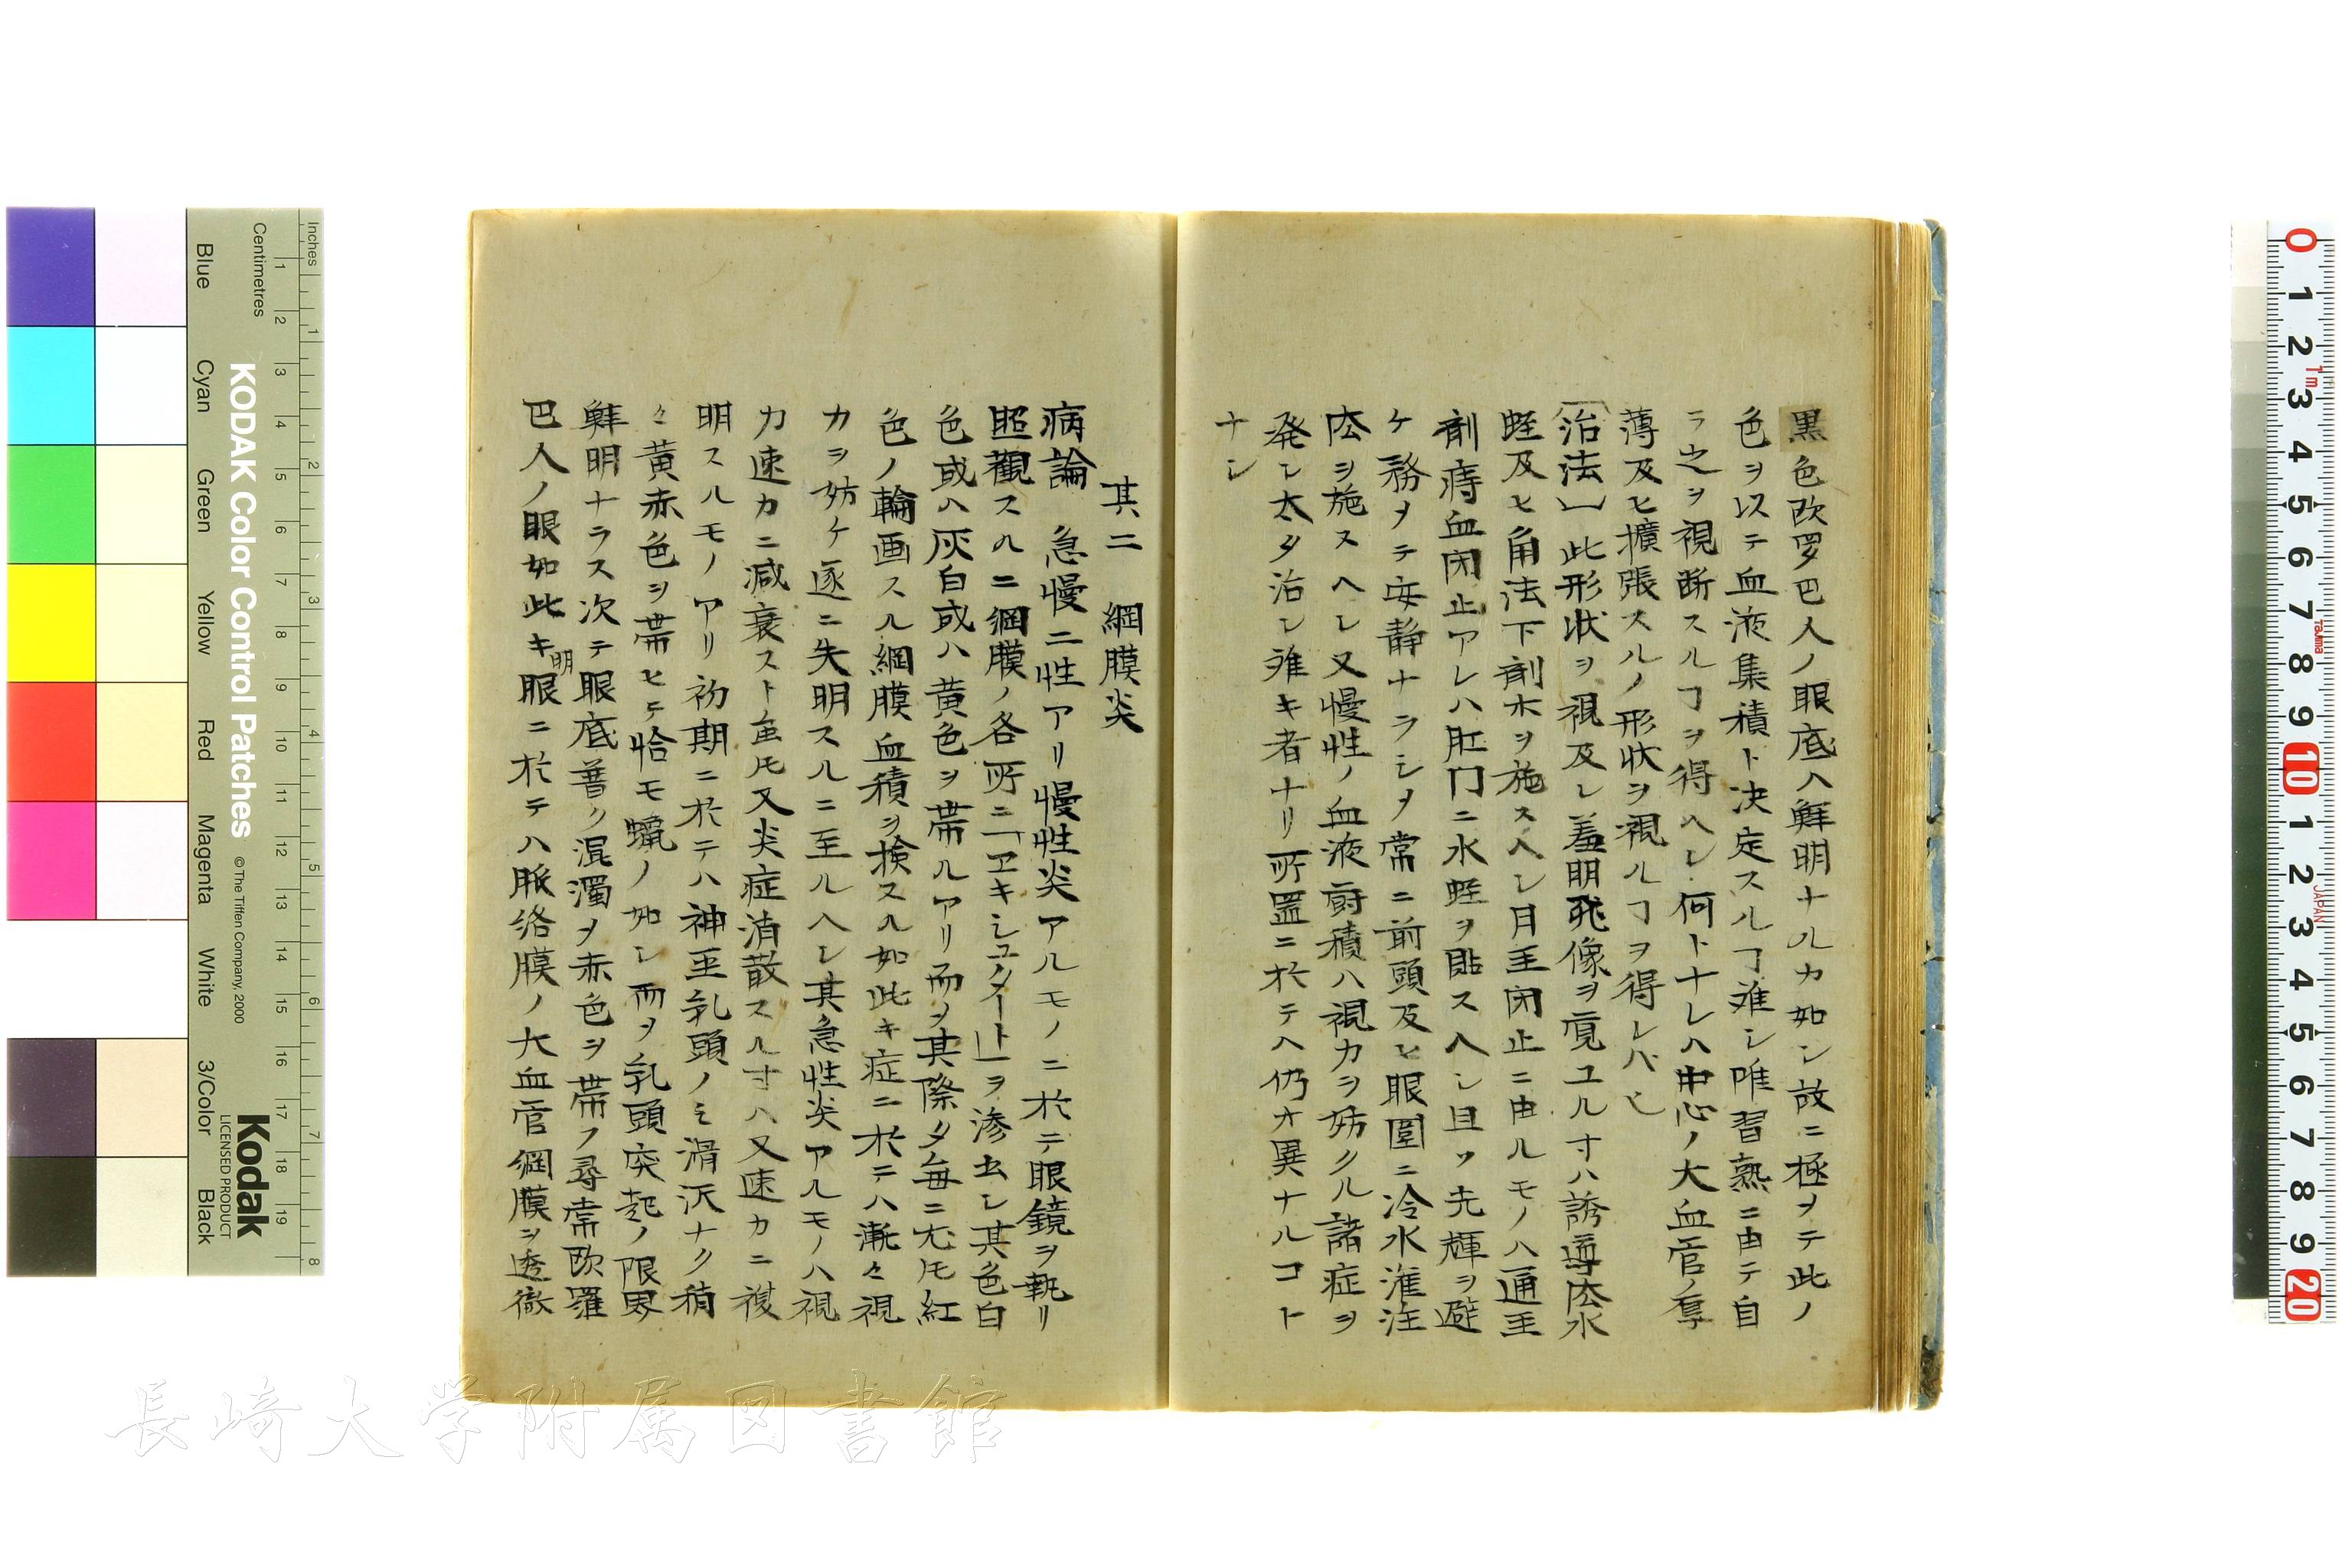 黒色欧罗巴人ノ眼底ハ鮮明ナルカ如シ故ニ極ヲテ此ノ
色ヲ以テ血液集積ト决定スルヿ难シ唯習熟ニ由テ自
ラ之ヲ視断スルヿヲ得ヘシ何トナレハ中心ノ大血官ノ厚
薄及ヒ擴張スルノ形状ヲ視ルヿヲ得レバ也
「治法」此形状ヲ視及シ羞明飛像ヲ覓ユル寸ハ誘導法水
蛭及ヒ角法下剤木ヲ施スヘシ月圣闭止ニ由ルモノハ通圣
剤痔血闭止アレハ肛門ニ水蛭ヲ貼スヘシ且ツ光輝ヲ避
ケ務メテ安静ナラシメ常ニ前頭及ヒ眼圍ニ冷水潅注
法ヲ施スヘシ又慢性ノ血液欝積ハ視力ヲ妨クル諸症ヲ
発シ太タ治シ难キ者ナリ所置ニ於テヘ仍ホ異ナルコト
ナシ
其二 網膜炎
病論 急慢二性アリ慢性炎アルモノニ於テ眼鏡ヲ執リ
照觀スルニ網膜ノ各所ニ「ヱキシュタート」ヲ滲出シ其色白
色或ハ灰白或ハ黄色ヲ帯ルアリ而メ其際タ毎ニ尤モ紅
色ノ輪画スル網膜血積ヲ検スル如此キ症ニ於テハ漸々視
力ヲ妨ケ遂ニ失明スルニ至ルヘシ其急性炎アルモノハ視
力速カニ減衰スト虽モ又炎症消散スル寸ハ又速カニ復
明スルモノアリ初期ニ於テハ神圣乳頭ノミ滑沢ナク稍
々黄赤色ヲ帯ヒテ恰モ蠟ノ如シ而メ乳頭突起ノ限界
鮮明ナラス次テ眼底普ク混濁メ赤色ヲ帯フ尋常欧羅
巴人ノ眼如此キ明眼ニ於テハ脈絡膜ノ大血官網膜ヲ透徹
長崎大学附属図書館
KODAK Color Control Patches
© The Tiffen Company, 2000
Kodak
LICENSED PRODUCT
Inches 1 2 3 4 5 6 7 8
Centimetres 1 2 3 4 5 6 7 8 9 10 11 12 13 14 15 16 17 18 19
Blue
Cyan
Green
Yellow
Red
Magenta
White
3/Color
Black
0 1 2 3 4 5 6 7 8 9 10 1 2 3 4 5 6 7 8 9 20
1m
Tajima
JAPAN